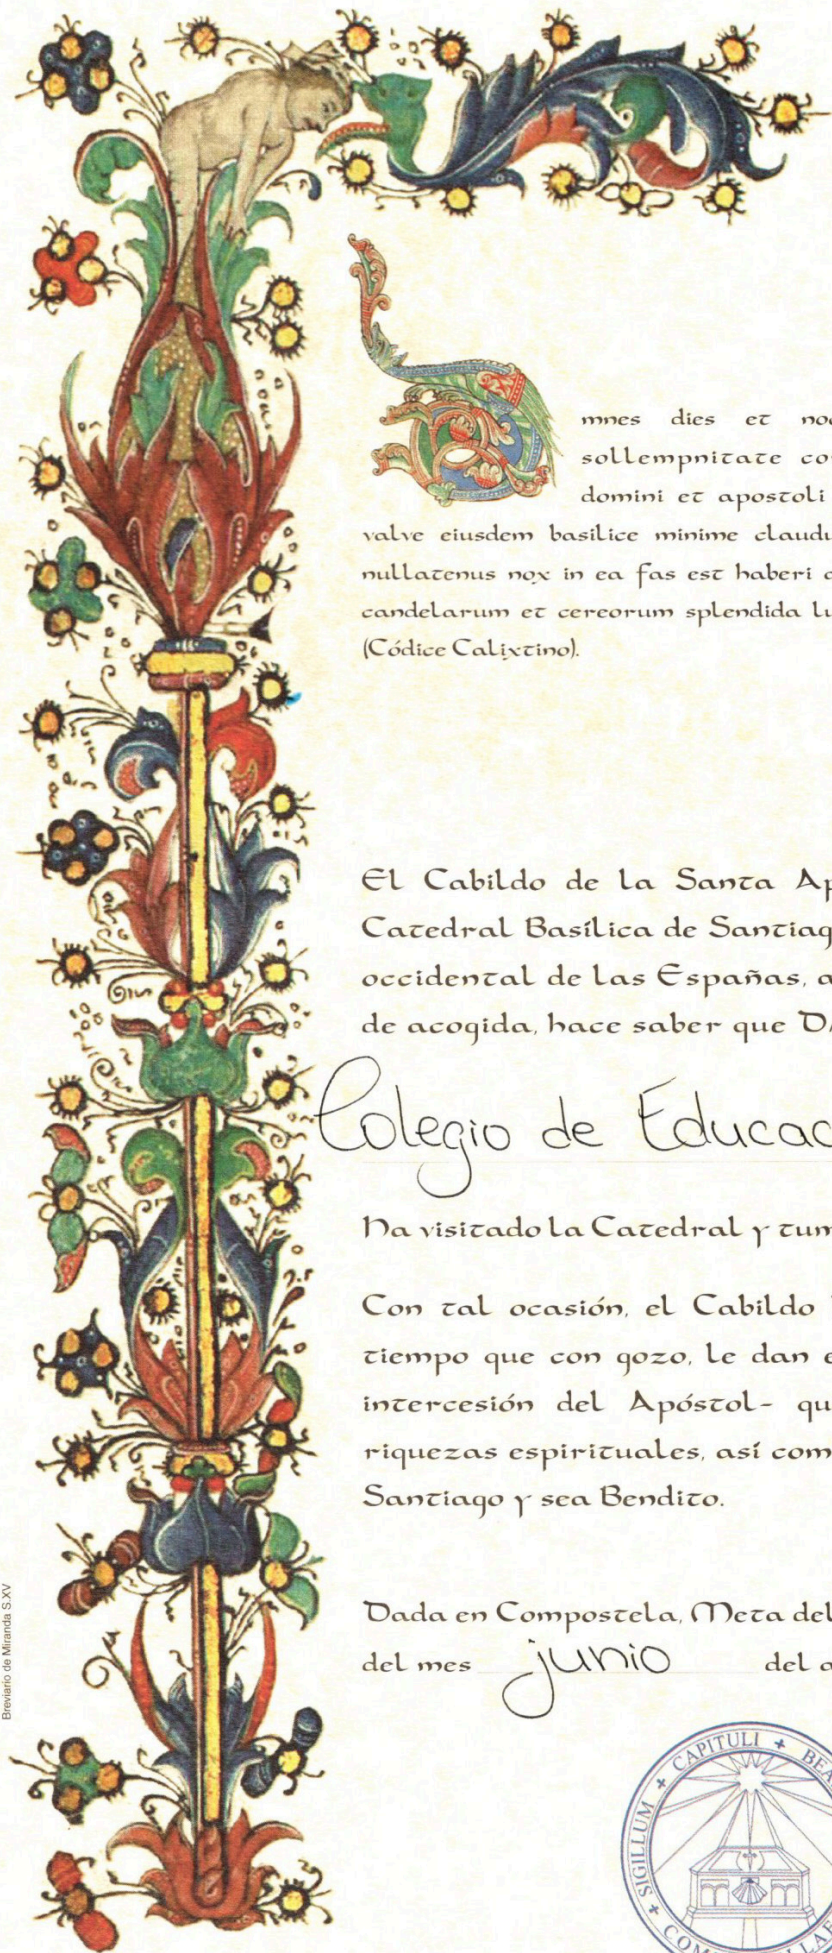 mnes dies et
sollempnitate
domini et apostoli
valve eiusdem basilice minime
nullatenus nox in ea fas est haberi
candelarum et cereorum splendida
(Códice Calixtino).
El Cabildo de la Santa
Catedral Basílica de
occidental de las Españas,
de acogida, hace saber que
Colegio de
Ha visitado la Catedral y
Con tal ocasión, el Cabildo
tiempo que con gozo, le dan
intercesión del Apóstol-
riquezas espirituales, así
Santiago y sea Bendito.
Dada en Compostela, Meta del
del mes junio del
SIGILLUM + CAPITULI +
Breviario de Miranda S.XV